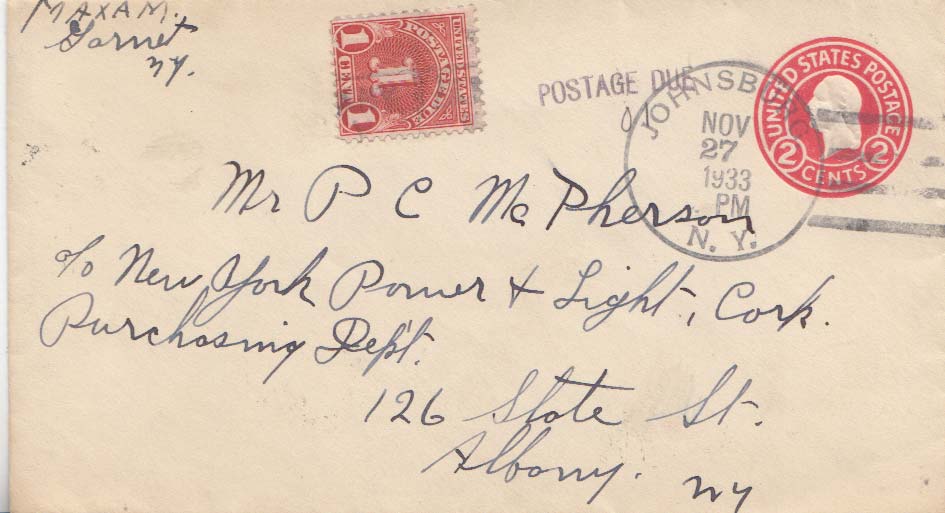 MAXAM.
Garnet
NY.
UNITED STATES
POSTAGE DUE
1 CENT 1
1
POSTAGE DUE
JOHNSBURG
NOV
27
1933
PM
N. Y.
UNITED STATES POSTAGE
2 CENTS 2
Mr P C McPherson
c/o New York Power & Light, Corp.
Purchasing Dept.
126 State St.
Albany. NY